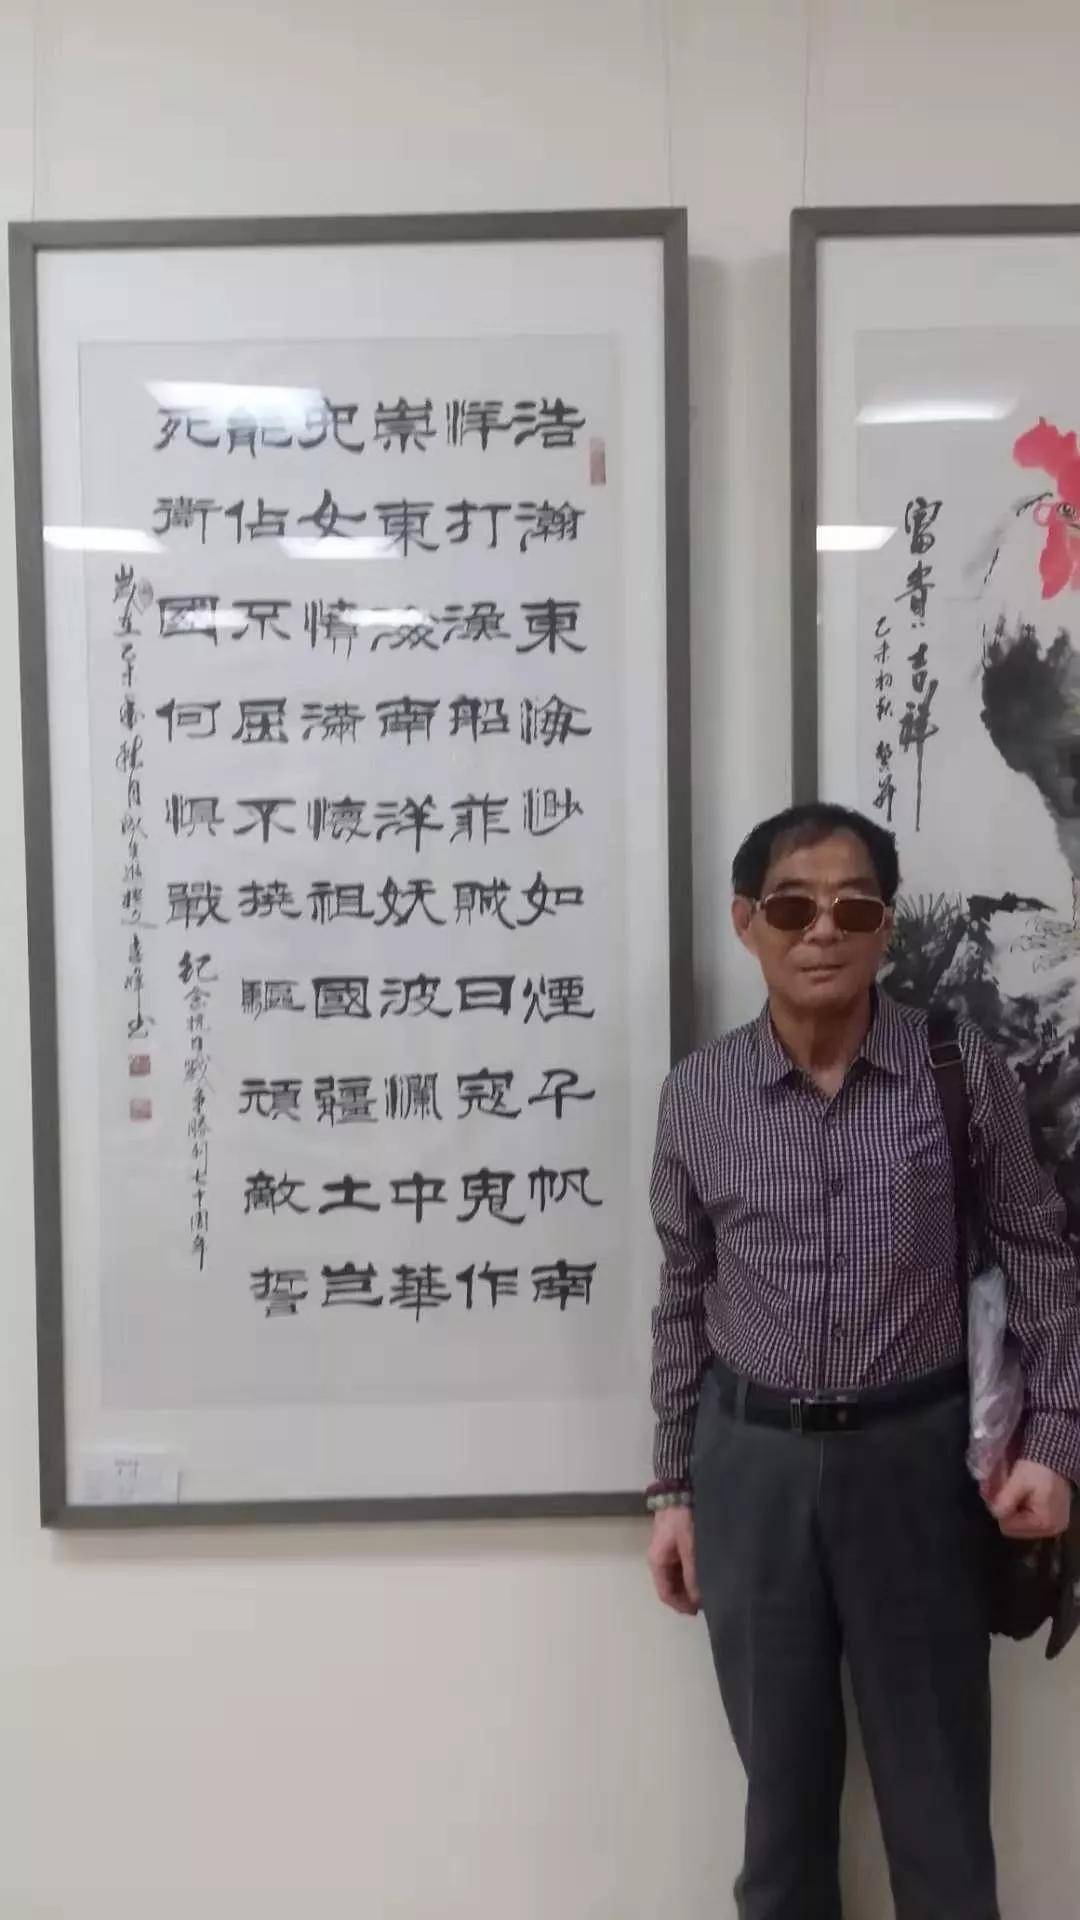 浩瀚東海渺如煙千帆南
洋打漁船菲賊日寇鬼作
祟東海南洋妖波瀾中華
兒女情滿懷祖國疆土豈
能佔不屈不撓驅頑敵誓
死衛國何懼戰
紀念抗日戰爭勝利七十周年
歲在乙未
富貴吉祥
乙未初秋